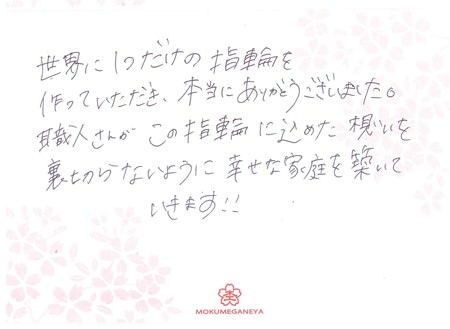 世界に1つだけの指輪を
作っていただき、本当にありがとうございました。
職人さんがこの指輪に込めた想いを
裏切らないように幸せな家庭を築いて
いきます!!
MOKUMEGANEYA